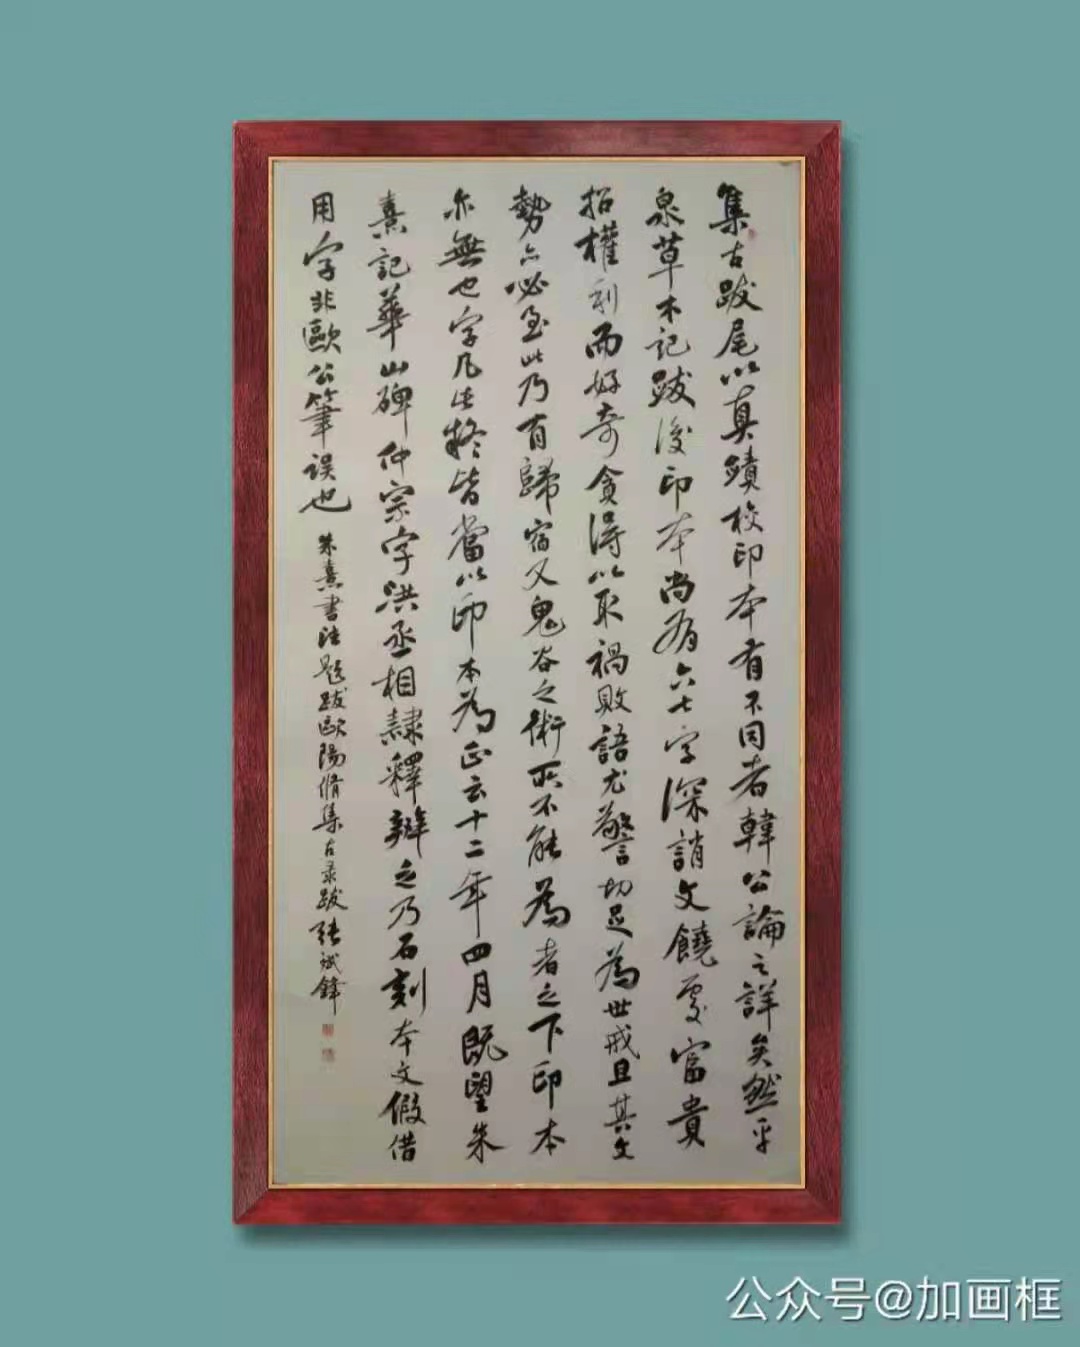 集古跋尾以真蹟校印本有不同者韓公論之詳矣然平
泉草木記跋後印本尚有六七字深誚文饒處富貴
招權利而好奇貪得以取禍敗語尤警切足為世戒且其文
勢亦必至此乃有歸宿又鬼谷之術所不能為者之下印本
亦無也字凡此疑皆當以印本為正云十二年四月既望朱
熹記華山碑仲宗字洪丞相隷釋辨之乃石刻本文假借
用字非歐公筆误也
朱熹書法題跋歐陽脩集古录跋張斌鋒
公众号@加画框